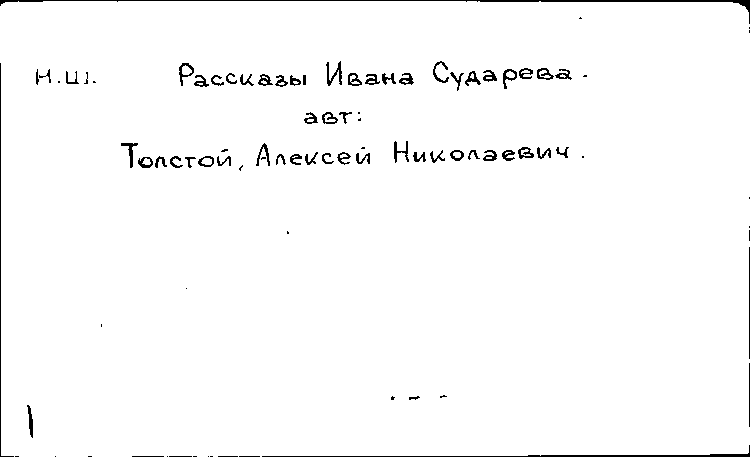 Н.Ш. Рассказы Ивана Сударева.
авт:
Толстой, Алексей Николаевич.